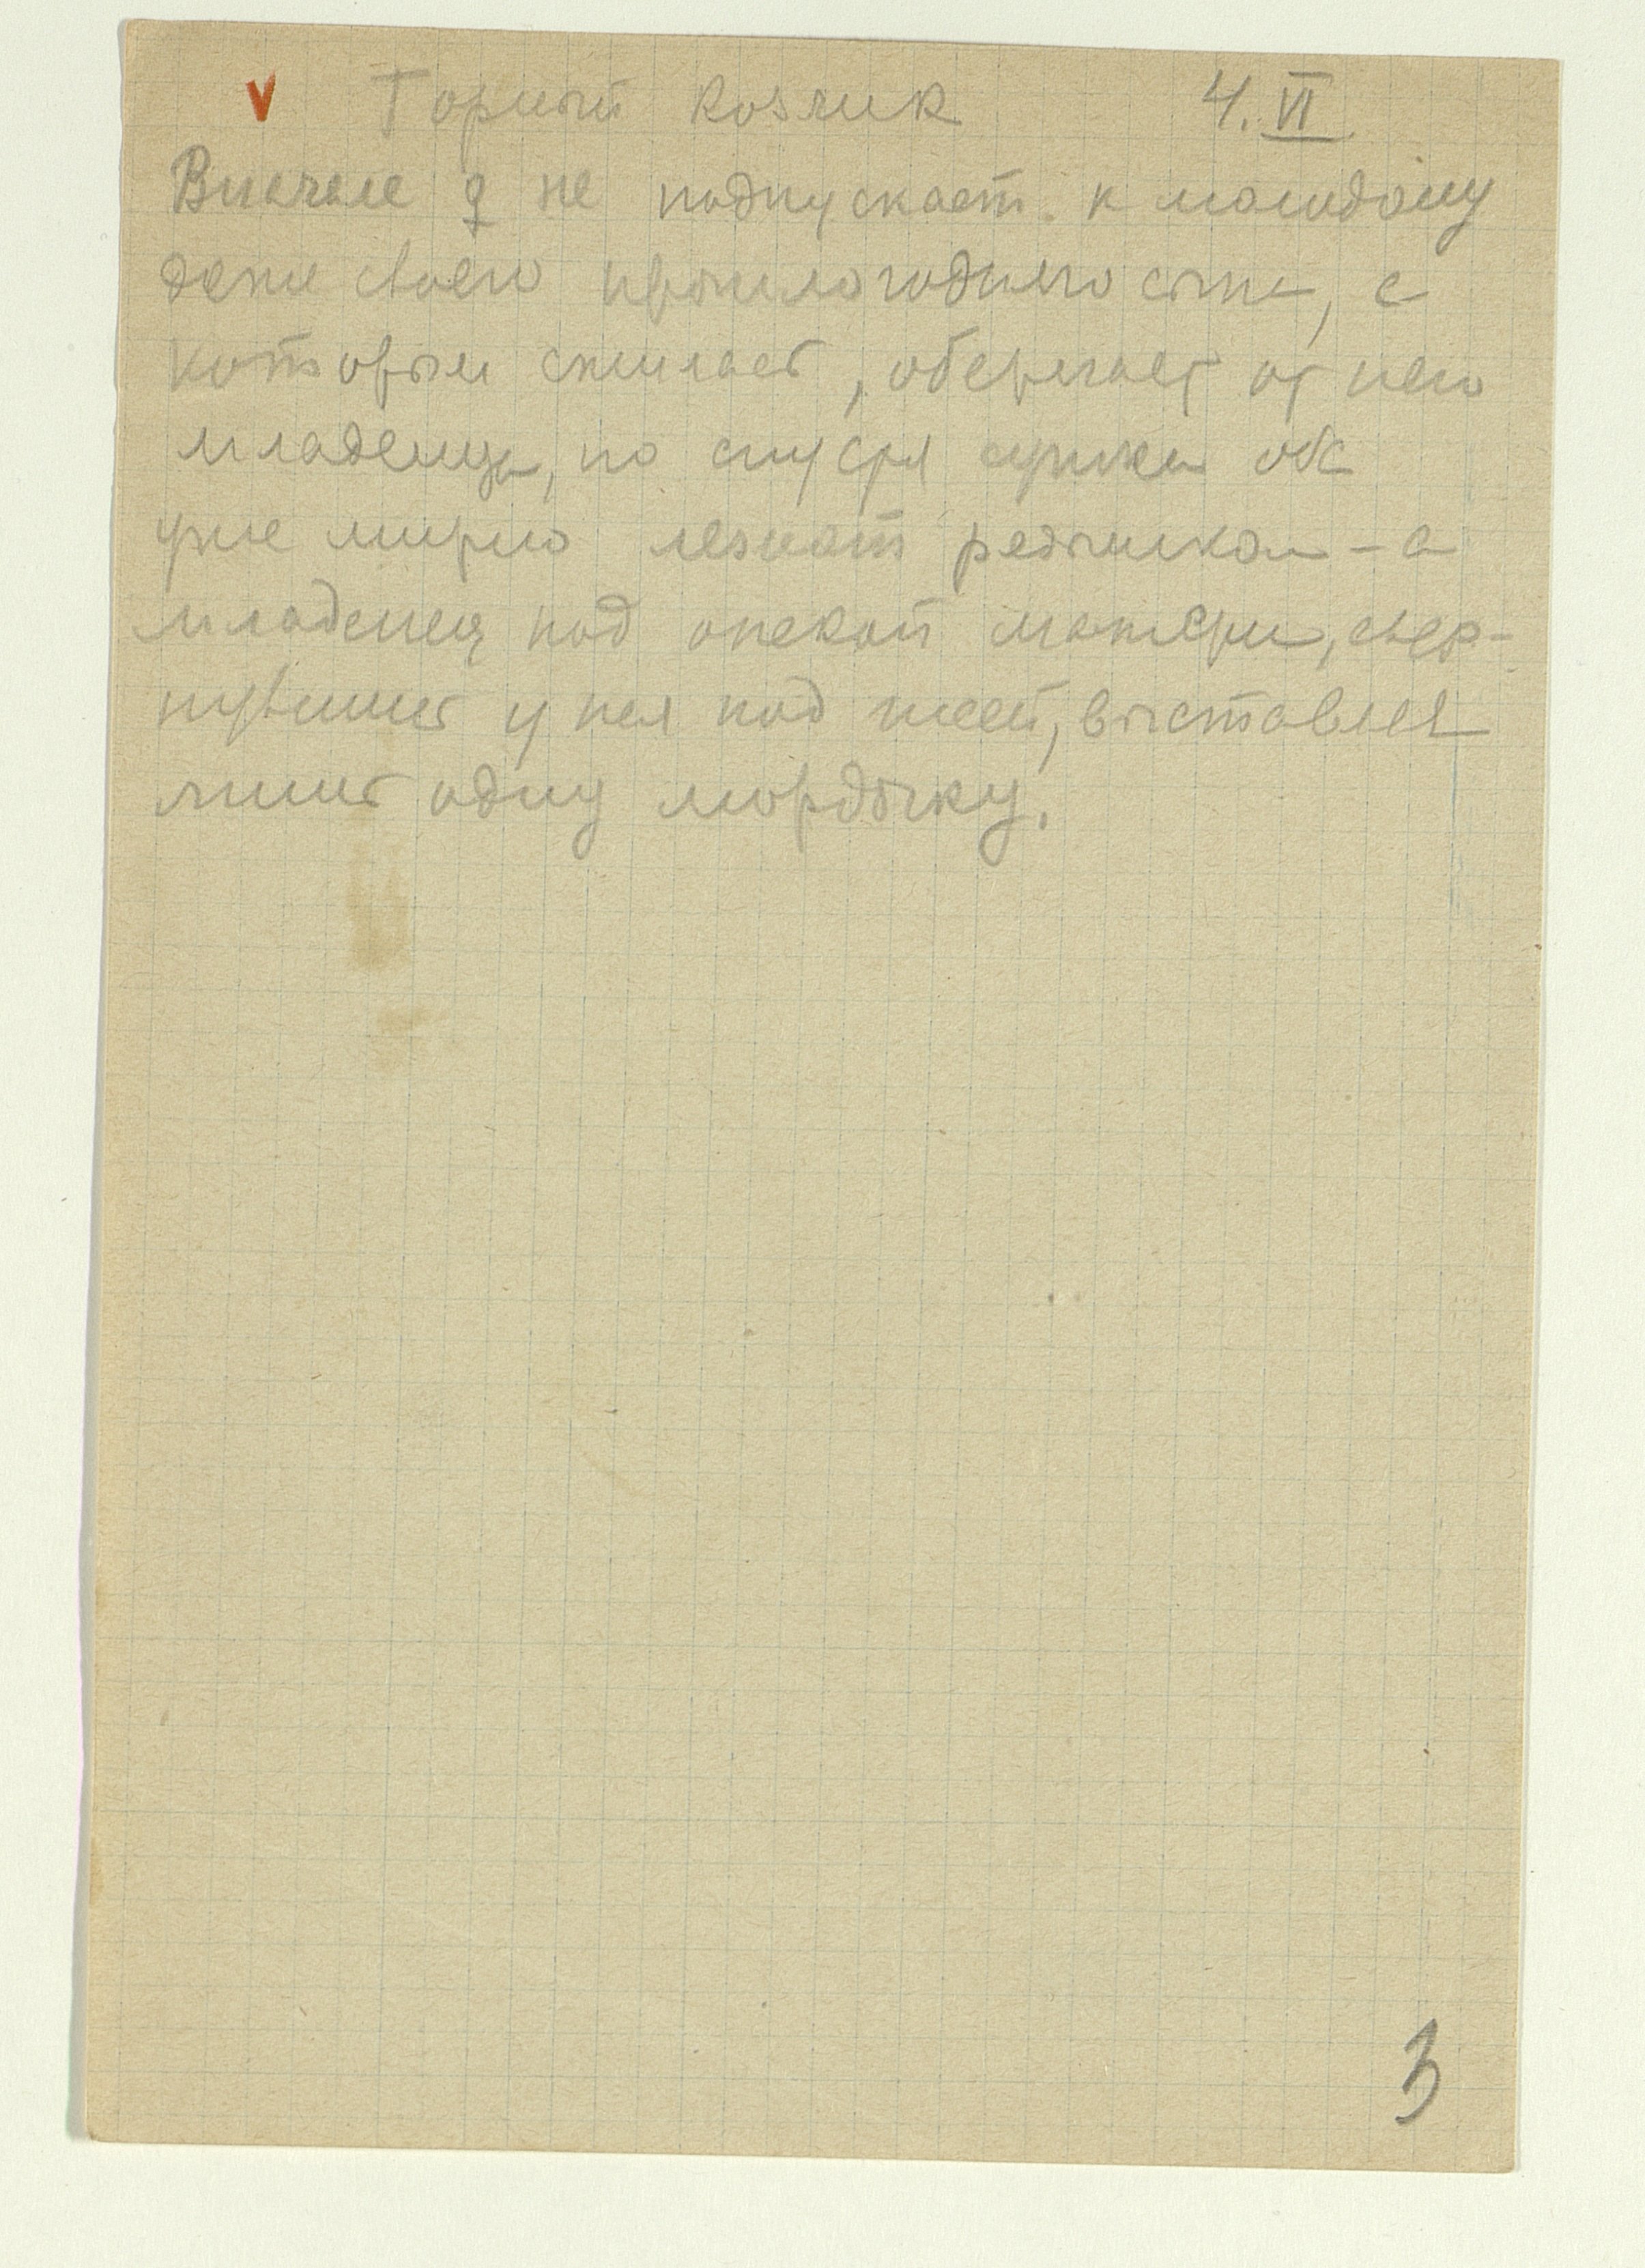 v Горный козлик 4. VI
Вначале ♀ не подпускает к молодому
даже своего прошлогоднего сына, с
которым сжилась, оберегает от него
младенца, но спустя сутки оба
уже мирно лежат рядышком - а
младенец под опекой матери, свер-
нувшись у нея под шеей, выставляет
лишь одну мордочку.
3